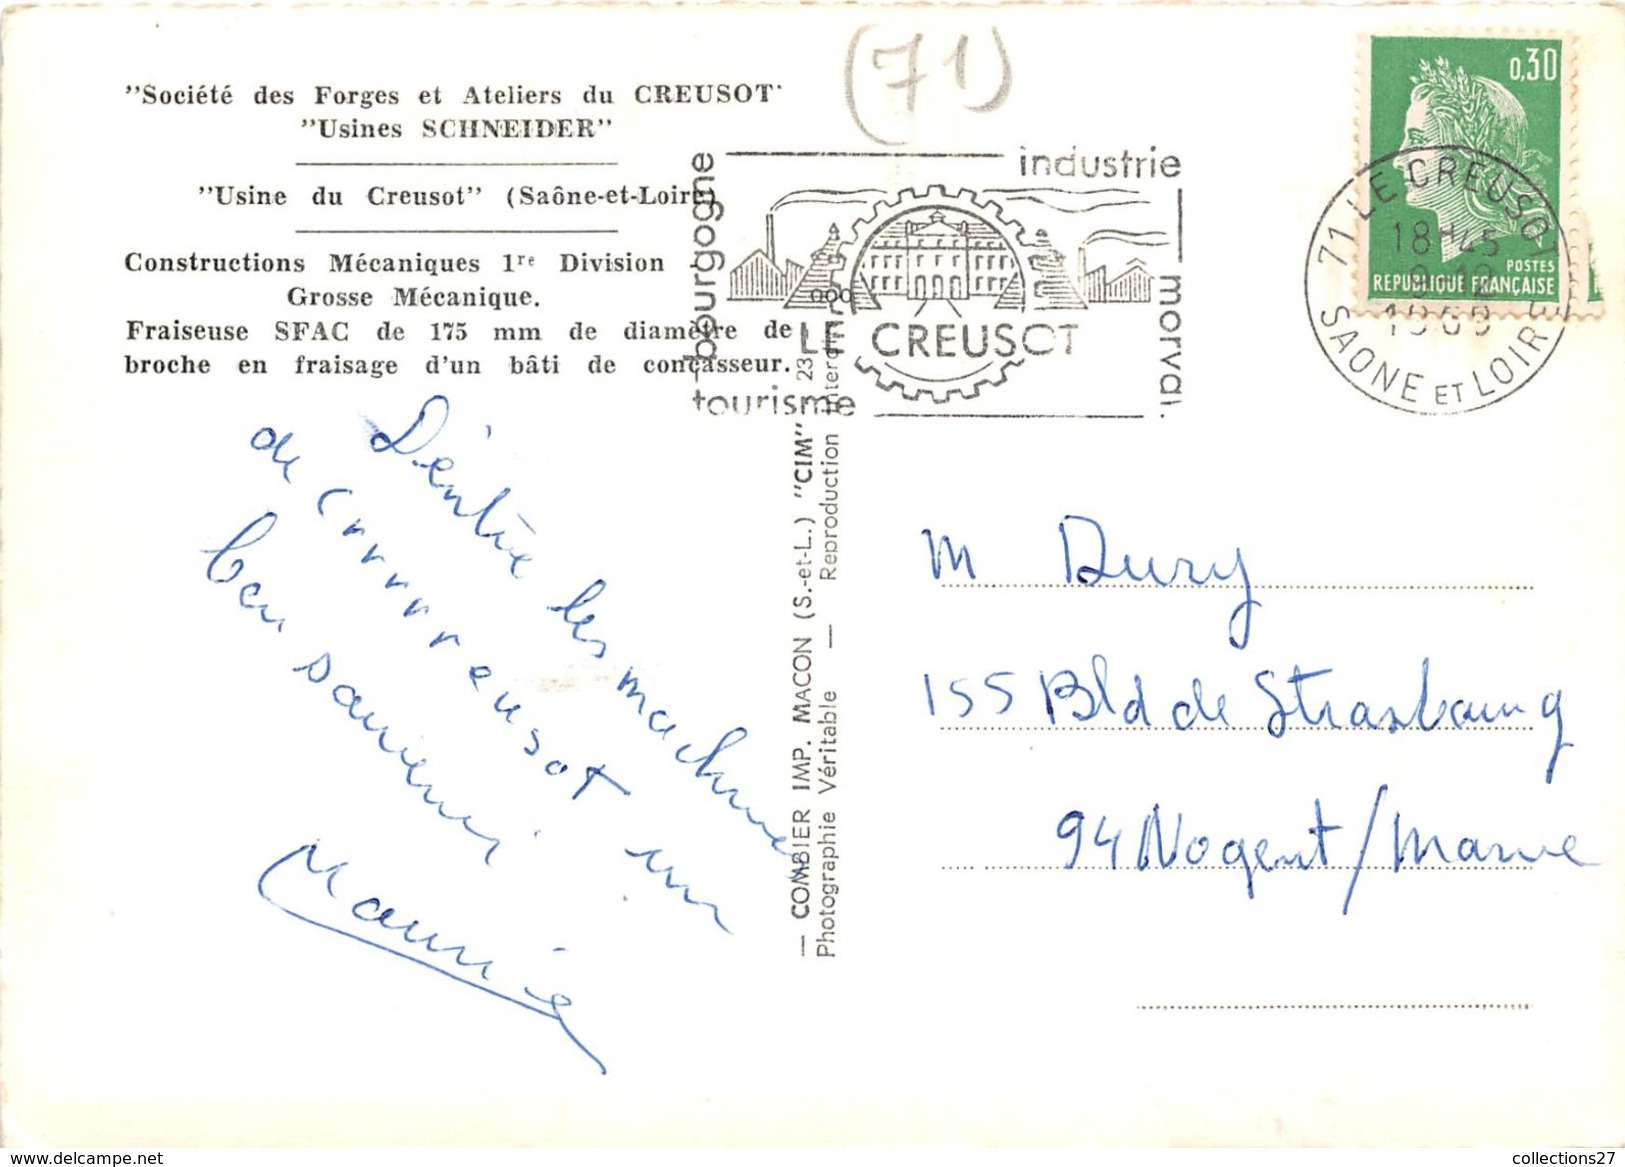 (71)
"Société des Forges et Ateliers du CREUSOT"
"Usines SCHNEIDER"
"Usine du Creusot" (Saône-et-Loire)
Constructions Mécaniques 1re Division
Grosse Mécanique.
Fraiseuse SFAC de 175 mm de diamètre de
broche en fraisage d'un bâti de concasseur.
bourgogne
industrie
morvan
tourisme
LE CREUSOT
0,30
POSTES
REPUBLIQUE FRANÇAISE
71 LE CREUSOT
18H45
9-12
1969
SAONE ET LOIRE
D'entre les machines
de Crrrrreusot un
bon souvenir
Maurice
— COMBIER IMP. MACON (S.-et-L.) "CIM" 23
Photographie Véritable — Reproduction
M Dury
155 Bld de Strasbourg
94 Nogent/Marne
collections27